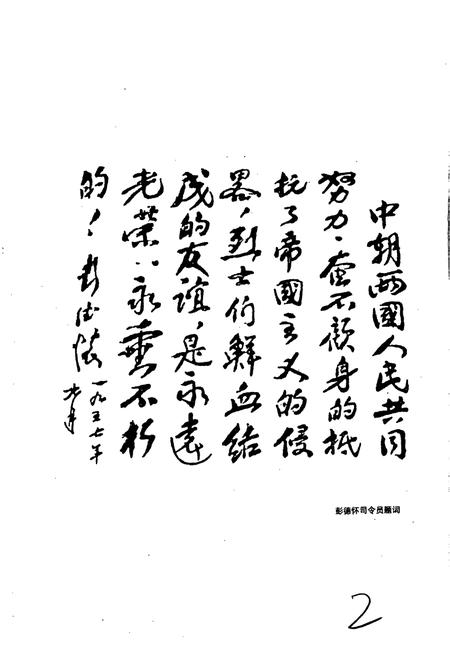 中朝兩國人民共同
努力、奮不顧身的抵
抗了帝國主义的侵
畧,烈士们鮮血結
成的友誼,是永遠
光荣、永垂不朽
的!彭德懷
一九五七年
月
彭德怀司令员题词
2